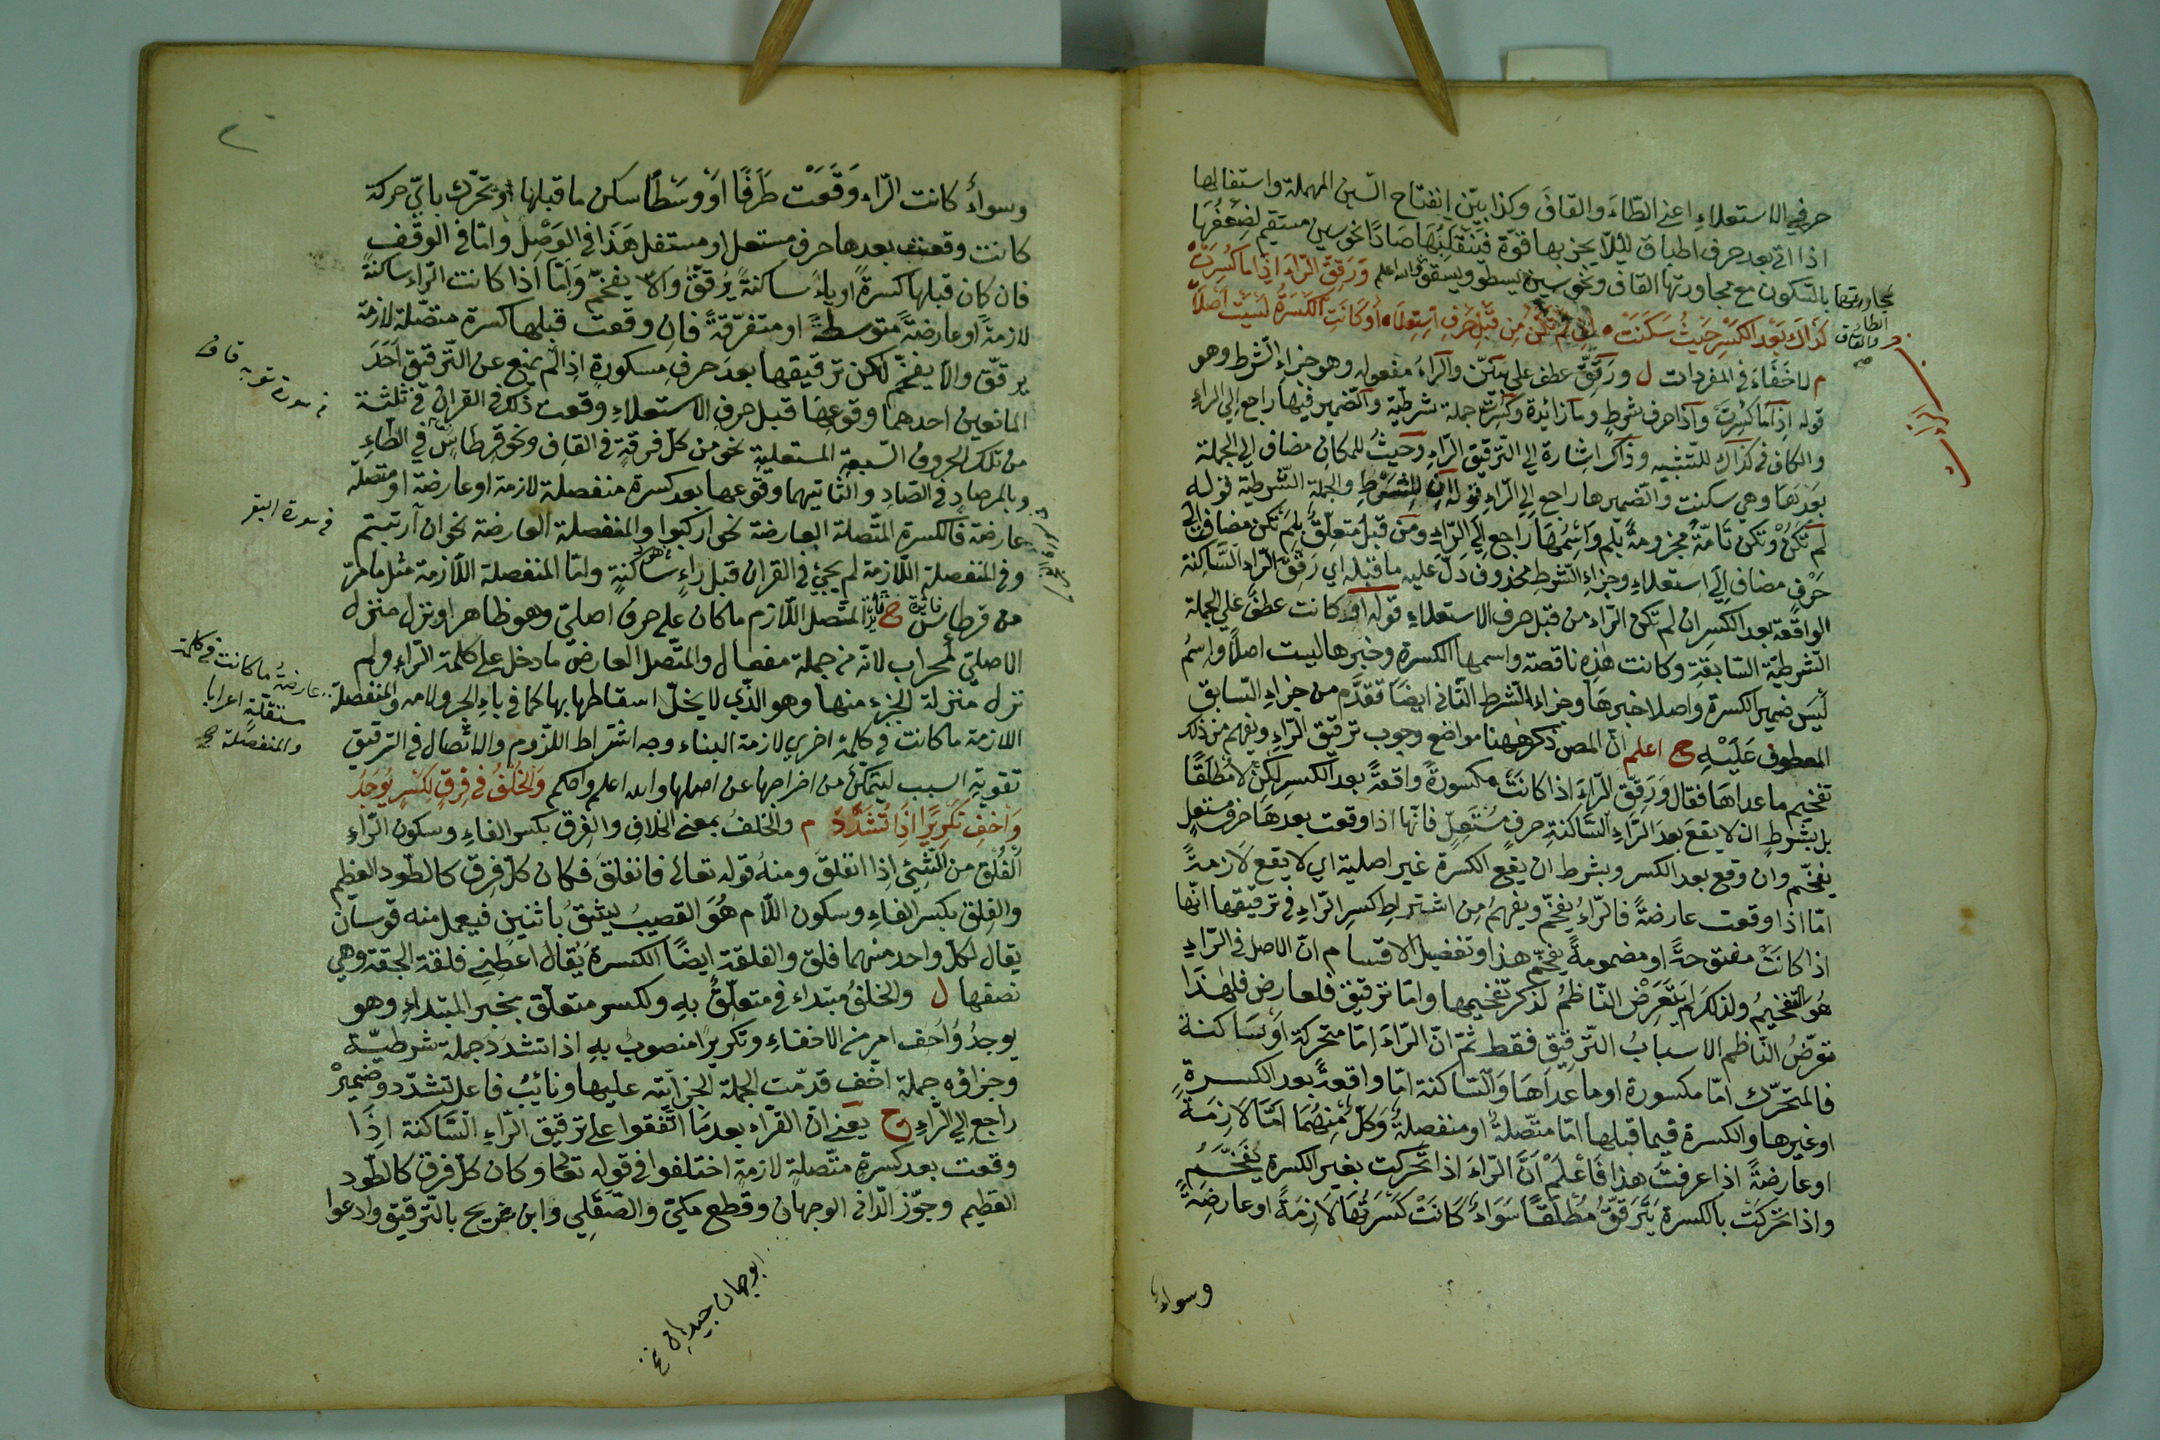 حرفي الاستعلاء اعني الطاء والقاف وكذا بيّن انفتاح السين المهملة واستفالها
اذا اتى بعد حرف اطباق لئلا يجذبها قوة فينقلبها صادا نحو سين مستقيم لضعفها
بالسكون مع مجاورتها القاف ونحو سين يسطو ويسقو والله اعلم وَرَقِّقِ الرَّاءَ اِذَا مَا كُسِرَتْ
كَذَاكَ بَعْدَ الْكَسْرِ حَيْثُ سَكَنَتْ اِنْ لَمْ تَكُنْ مِنْ قَبْلِ حَرْفِ اسْتِعْلَاء اَوْ كَانَتِ الْكَسْرَةُ لَيْسَتْ اَصْلًا
م لا خفاء في المفردات ل ورقّق عطف على بيّن والراء مفعوله وهو جزاء الشرط وهو
قوله اذا ما كسرت واذا حرف شرط وما زائدة وكسرت جملة شرطية والضمير فيها راجع الى الراء
والكاف في كذاك للتشبيه وذاك اشارة الى الترقيق الراء وحيث للمكان مضاف الى الجملة
بعدها وهي سكنت والضمير ها راجع الى الراء قوله ان للشرط والجملة الشرطية قوله
لم تكن وتكن تامة مجزومة بلم واسمها راجع الى الراء ومن قبل متعلق بلم تكن مضاف الى
حرف مضاف الى استعلاء وجزاء الشرط محذوف دل عليه ما قبله اي رقق الراء الساكنة
الواقعة بعد الكسر ان لم تكن الراء من قبل حرف الاستعلاء قوله او كانت عطف على الجملة
الشرطية السابقة وكانت هذه ناقصة واسمها الكسرة وخبرها ليست اصلا واسم
ليس ضمير الكسرة واصلا خبرها وجزاء الشرط الثاني ايضا تقدم من جزاء السابق
المعطوف عليه ح اعلم ان المص ذكر ههنا مواضع وجوب ترقيق الراء ويفهم من ذلك
تفخيم ما عداها فقال ورقق الراء اذا كانت مكسورة واقعة بعد الكسر لكن لا مطلقا
بل بشرط ان لا يقع بعد الراء الساكنة حرف مستعل فانها اذا وقعت بعدها حرف مستعل
يفخم وان وقع بعد الكسر وبشرط ان يقع الكسرة غير اصلية اي لا يقع لازمة
اما اذا وقعت عارضة فالراء يفخم ويفهم من اشتراط كسر الراء في ترقيقها انها
اذا كانت مفتوحة او مضمومة يفخم هذا وتفصيل الاقسام ان الاصل في الراء
هو التفخيم ولذلك لم يتعرض الناظم لذكر تفخيمها واما ترقيق فلعارض فلهذا
تعرض الناظم الاسباب الترقيق فقط ثم ان الراء اما متحركة او ساكنة
فالمتحرك اما مكسورة او ما عداها والساكنة اما واقعة بعد الكسرة
او غيرها والكسرة فيما قبلها اما متصلة او منفصلة وكل منهما اما لازمة
او عارضة اذا عرفت هذا فاعلم ان الراء اذا تحركت بغير الكسرة يفخم
واذا تحركت بالكسرة يترقق مطلقا سواء كانت كسرتها لازمة او عارضة
وسواء
وسواء كانت الراء وقعت طرفا او وسطا سكن ما قبلها او تحرك باي حركة
كانت وقعت بعدها حرف مستعل او مستفل هذا في الوصل واما في الوقف
فان كان قبلها كسرة او ياء ساكنة يرقق والا يفخم واما اذا كانت الراء ساكنة
لازمة او عارضة متوسطة او متفرقة فان وقعت قبلها كسرة متصلة لازمة
يرقق والا يفخم لكن ترقيقها بعد حرف مسكورة اذا لم يمنع عن الترقيق احد
المانعين احدهما وقوعها قبل حرف الاستعلاء وقعت ذلك في القران في ثلثة
من تلك الحروف السبعة المستعلية نحو من كل فرقة في القاف ونحو قرطاس في الطاء
وبالمرصاد في الصاد والثانيهما وقوعها بعد كسرة منفصلة لازمة او عارضة او متصلة
عارضة فالكسرة المتصلة العارضة نحو اركبوا والمنفصلة العارضة نحو ان ارتبتم
وفي المنفصلة اللازمة لم يجئ في القران قبل راء ساكنة واما المنفصلة اللازمة مثل ما مر
من قرطاس ح فائدة المتصل اللازم ما كان على حرف اصلي وهو ظاهر او نزل منزل
الاصلي كمحراب لانه من جملة مفعال والمتصل العارض ما دخل على كلمة الراء ولم
نزل منزلة الجزء منها وهو الذي لا يخل اسقاطها بها كما في باء الجر ولامه والمنفصلة
اللازمة ما كانت في كلمة اخرى لازمة البناء وجه اشتراط اللزوم والاتصال في الترقيق
تقوية السبب ليتمكن من اخراجها عن اصلها والله اعلم واحكم وَالْخُلْفُ فِي فِرْقٍ لِكَسْرٍ يُوجَدُ
وَاَخْفِ تَكْرِيرًا اِذَا تُشَدَّدُ م والخلف بمعنى الخلاف والفرق بكسر الفاء وسكون الراء
الفلق من الشيء اذا انفلق ومنه قوله تعالى فانفلق فكان كل فرق كالطود العظيم
والفلق بكسر الفاء وسكون اللام هو القصيب يشق باثنين فيعمل منه قوسان
يقال لكل واحد منهما فلق والفلقة ايضا الكسرة يقال اعطني فلقة الجفنة وهي
نصفها ل والخلف مبتداء في متعلق به ولكسر متعلق بخبر المبتداء وهو
يوجد واخف امر من الاخفاء وتكريرا منصوب به اذا تشدد جملة شرطية
وجزاؤه جملة اخف قدمت الجملة الجزائية عليها ونائب فاعل تشدد وضمير
راجع الى الراء ح يعني ان القراء بعد ما اتفقوا على ترقيق الراء الساكنة اذا
وقعت بعد كسرة متصلة لازمة اختلفوا في قوله تعالى وكان كل فرق كالطود
العظيم وجوز الداني الوجهان وقطع مكي والصقلي وابن شريح بالترقيق وادعوا
في سورة توبه قاف
في سورة البقرة
عارضة ما كانت في كلمة
مستقلة اعرابا
والمنفصلة